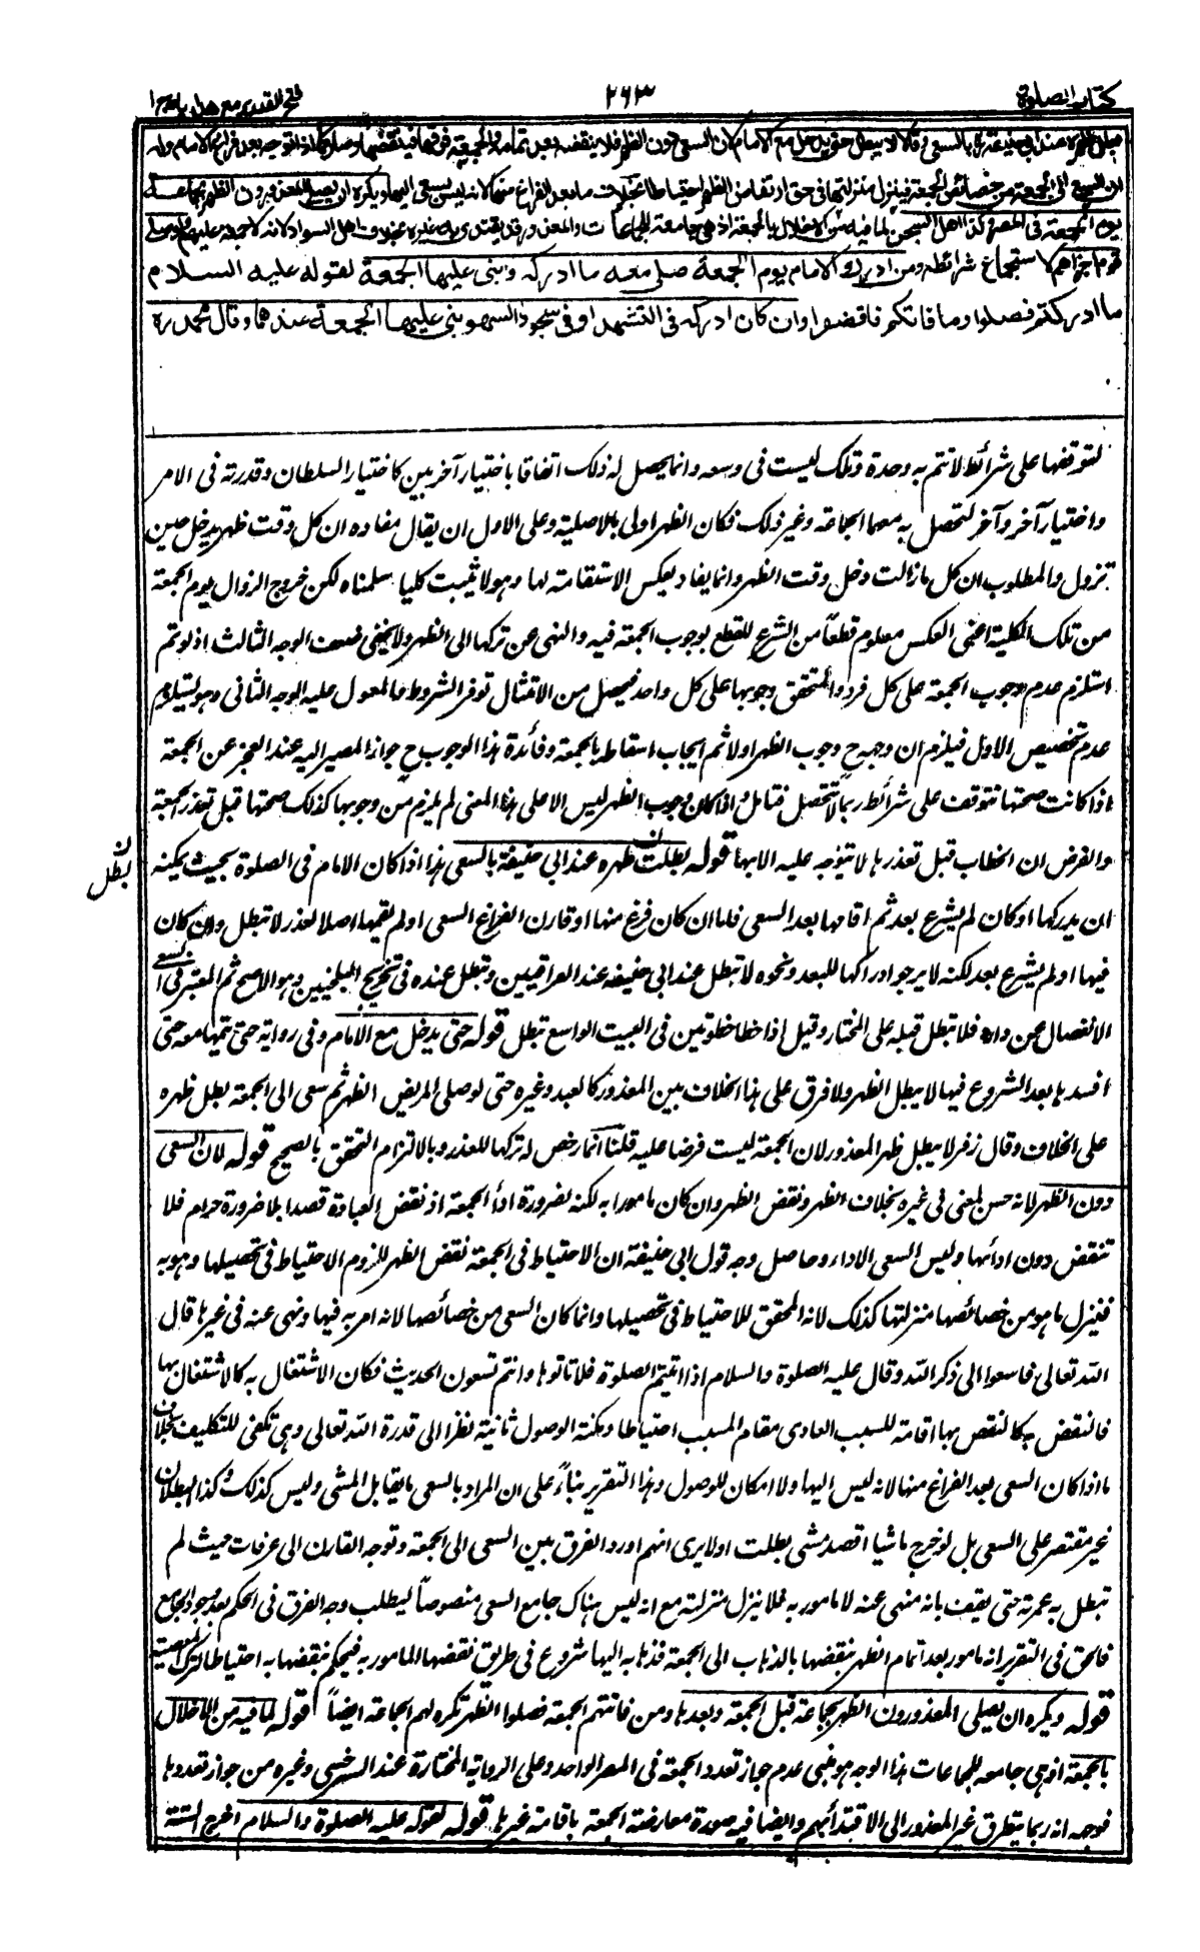 كتاب الصلوة
٢٦٣
فتح القدير مع هداية ج ١
ظهره عند ابي حنيفة بالسعى وقالا لا يبطل حتى يدخل مع الامام لان السعى دون الظهر فلا ينقضه بعد تمامه والجمعة فوقها فينقضها وصار كما اذا توجه بعد فراغ الامام وله
ان السعى الى الجمعة من خصائص الجمعة فينزل منزلتها فى حق ارتفاض الظهر احتياطا بخلاف ما بعد الفراغ منها لانه ليس بسعى اليها ويكره ان يصلى المعذورون الظهر بجماعة
يوم الجمعة فى المصر وكذا اهل السجن لما فيه من الاخلال بالجمعة اذ هى جامعة للجماعات والمعذور قد يقتدى به غيره بخلاف اهل السواد لانه لا جمعة عليهم ولو صلى
قوم اجزاهم لاستجماع شرائطه ومن ادرك الامام يوم الجمعة صلى معه ما ادركه وبنى عليها الجمعة لقوله عليه السلام
ما ادركتم فصلوا وما فاتكم فاقضوا وان كان ادركه فى التشهد او فى سجود السهو بنى عليها الجمعة عندهما وقال محمد ره
لتوقفها على شرائط لا تتم به وحده وتلك ليست فى وسعه وانما يحصل له ذلك اتفاقا باختيار آخرين كاختيار السلطان وقدرته فى الامر
واختيار آخر وآخر لتحصل به معهما الجماعة وغير ذلك فكان الظهر اولى بالاصلية وعلى الاول ان يقال مفاده ان كل وقت ظهر يدخل حين
تزول والمطلوب ان كل ما زالت دخل وقت الظهر وانما يفاد بعكس الاستقامة لها وهو لا يثبت كليا سلمناه لكن خروج الزوال يوم الجمعة
من تلك الكلية اعنى العكس معلوم قطعاً من الشرع للقطع بوجوب الجمعة فيه والنهى عن تركها الى الظهر ولا يخفى ضعف الوجه الثالث اذ لو تم
استلزم عدم وجوب الجمعة على كل فرد والمتحقق وجوبها على كل واحد فيحصل من الامتثال توفر الشروط فالمعول عليه الوجه الثانى وهو يستلزم
عدم تخصيص الاول فيلزم ان وجه ح وجوب الظهر اولا ثم ايجاب اسقاطه بالجمعة وفائدة هذا الوجوب ح جواز المصير اليه عند العجز عن الجمعة
اذا كانت صحتها تتوقف على شرائط ربما لا تتحصل فتامل واذا كان وجوب الظهر ليس الا على هذا المعنى لم يلزم من وجوبها كذلك صحتها قبل تعذر الجمعة
والفرض ان الخطاب قبل تعذرها لا يتوجه عليه الا بها قوله بطلت ظهره عند ابي حنيفة بالسعى هذا اذا كان الامام فى الصلوة بحيث يمكنه
ن
بطل
ان يدركها او كان لم يشرع بعد ثم اقامها بعد السعى فاما ان كان فرغ منها او قارن الفراغ السعى او لم يقمها اصلا لعذر لا تبطل وان كان
فيها او لم يشرع بعد لكنه لا يرجو ادراكها للبعد ونحوه لا تبطل عند ابي حنيفة عند العراقيين وتبطل عنده فى تخريج البلخيين وهو الاصح ثم المعتبر فى السعى
الانفصال عن داره فلا تبطل قبله على المختار وقيل اذا خطا خطوتين فى البيت الواسع تبطل قوله حتى يدخل مع الامام وفى رواية حتى يتمها معه حتى
افسدها بعد الشروع فيها لا يبطل الظهر ولا فرق على هذا الخلاف بين المعذور كالعبد وغيره حتى لو صلى المريض الظهر ثم سعى الى الجمعة بطل ظهره
على الخلاف وقال زفر لا يبطل ظهر المعذور لان الجمعة ليست فرضا عليه قلنا انما رخص له تركها للعذر وبالالتزام التحقق بالصحيح قوله لان السعى
دون الظهر لانه حسن لمعنى فى غيره بخلاف الظهر ونقض الظهر وان كان مامورا به لكنه لضرورة اداء الجمعة اذ نقض العبادة قصدا بلا ضرورة حرام فلا
تنقض دون ادائها وليس السعى الاداء وحاصل وجه قول ابي حنيفة ان الاحتياط فى الجمعة نقض الظهر للزوم الاحتياط فى تحصيلها وهو به
فينزل ما هو من خصائصها منزلتها كذلك لانه المحقق للاحتياط فى تحصيلها وانما كان السعى من خصائصها لانه امر به فيها ونهى عنه فى غيرها قال
الله تعالى فاسعوا الى ذكر الله وقال عليه الصلوة والسلام اذا اتيتم الصلوة فلا تاتوها وانتم تسعون الحديث فكان الاشتغال به كالاشتغال بها
فالنقض به كالنقض بها اقامة للسبب العادى مقام المسبب احتياطا ومكنة الوصول ثانية نظرا الى قدرة الله تعالى وهى تكفى للتكليف بخلاف
ما اذا كان السعى بعد الفراغ منها لانه ليس اليها ولا امكان للوصول وهذا التقرير بناءً على ان المراد بالسعى ما يقابل المشى وليس كذلك وكذا البطلان
غير مقتصر على السعى بل لو خرج ماشيا اقصد مشى بطلت اولا يرى انهم اوردوا الفرق بين السعى الى الجمعة وتوجه القارن الى عرفات حيث لم
تبطل به عمرته حتى يقف بانه منهى عنه لا مامور به فلا ينزل منزلته مع انه ليس هناك جامع السعى منصوصاً ليطلب وجه الفرق فى الحكم بعد وجود الجامع
فالحق فى التقرير انه مامور بعد اتمام الظهر بنقضها بالذهاب الى الجمعة فذهابه اليها شروع فى طريق نقضها المامور به فيحكم بنقضها به احتياطا لترك المعصية
قوله ويكره ان يصلى المعذورون الظهر بجماعة قبل الجمعة وبعدها ومن فاتتهم الجمعة فصلوا الظهر تكره لهم الجماعة ايضاً قوله لما فيه من الاخلال
بالجمعة اذ هى جامعه للجماعات هذا الوجه هو مبنى عدم جواز تعدد الجمعة فى المصر الواحد وعلى الرواية المختارة عند السرخسى وغيره من جواز تعددها
فوجهه انه ربما يتطرق غير المعذور الى الاقتداء بهم وايضا فيه صورة معارضة الجمعة باقامة غيرها قوله لقوله عليه الصلوة والسلام اخرج الستة